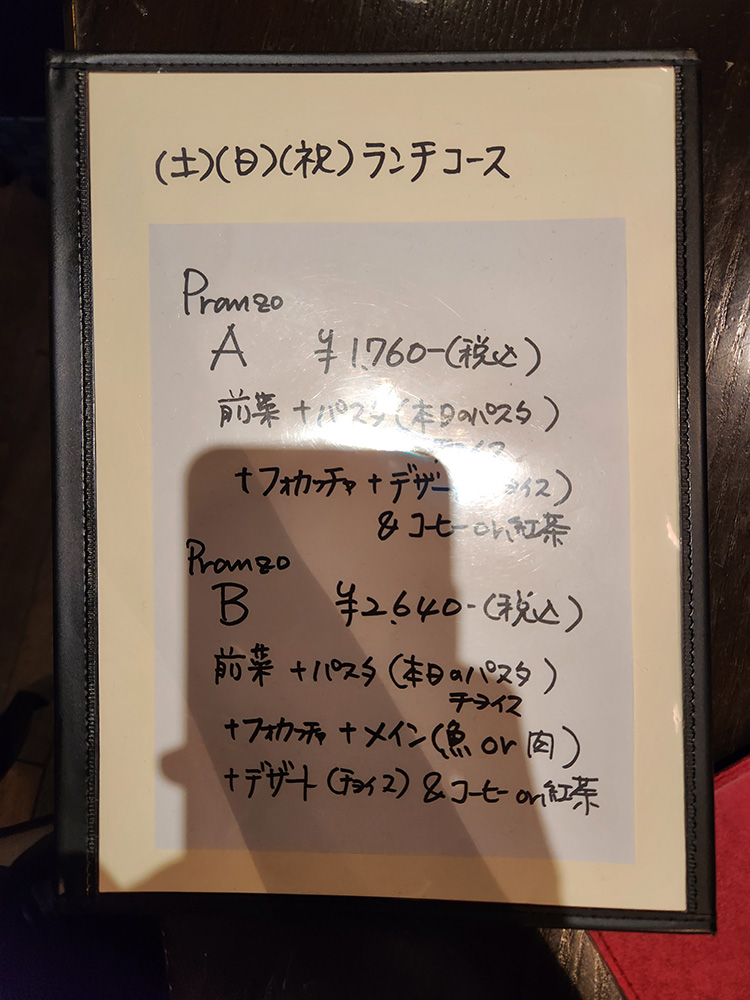 (土)(日)(祝)ランチコース
Pranzo
A ¥1,760-(税込)
前菜 +パスタ (本日のパスタ)
チョイス
+フォカッチャ +デザート (チョイス)
& コーヒー or 紅茶
Pranzo
B ¥2,640-(税込)
前菜 +パスタ (本日のパスタ)
チョイス
+フォカッチャ +メイン(魚 or 肉)
+デザート (チョイス) & コーヒー or 紅茶